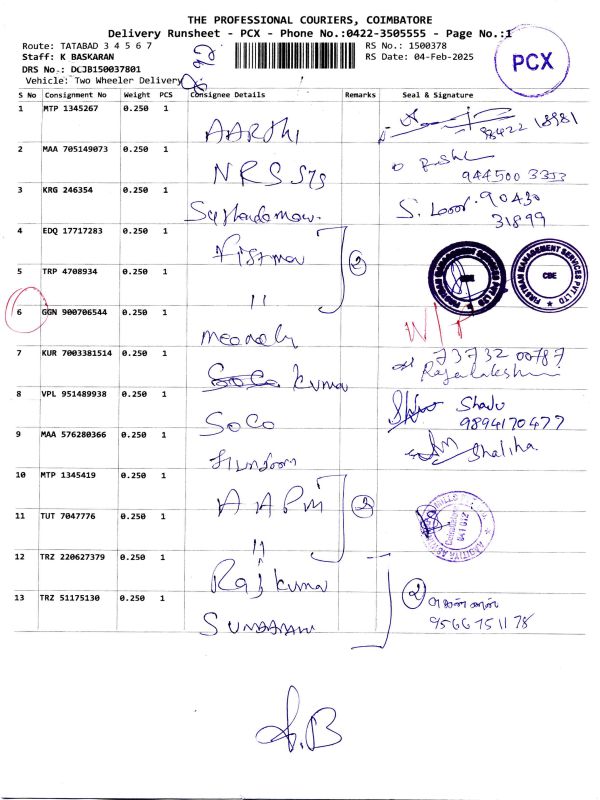 THE PROFESSIONAL COURIERS, COIMBATORE
Delivery Runsheet - PCX - Phone No.:0422-3505555 - Page No.:1
Route: TATABAD 3 4 5 6 7
RS No.: 1500378
Staff: K BASKARAN
RS Date: 04-Feb-2025
DRS No.: DCJB150037801
Vehicle: Two Wheeler Delivery
PCX
S No Consignment No Weight PCS Consignee Details Remarks Seal & Signature
1 MTP 1345267 0.250 1 AARTHI 98422 18981
2 MAA 705149073 0.250 1 NRS SYS 944500 3353
3 KRG 246354 0.250 1 90430
31899
4 EDQ 17717283 0.250 1 2
5 TRP 4708934 0.250 1 " FIRSTMAN MANAGEMENT SERVICES PVT LTD CBE
6 GGN 900706544 0.250 1
7 KUR 7003381514 0.250 1 Kumar 73732 00787
Rajalakshmi
8 VPL 951489938 0.250 1 SoCo Shadu
9894170477
9 MAA 576280366 0.250 1 Shaliha
10 MTP 1345419 0.250 1 AAPM 2
11 TUT 7047776 0.250 1 "
12 TRZ 220627379 0.250 1 Raj Kumar
13 TRZ 51175130 0.250 1 2
9566751178